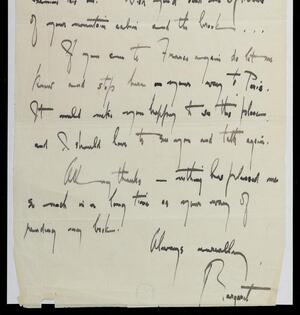 of your mountain cabin and the brook . . .
If you come to France again do let me
know and stop here on your way to Paris.
It would make you happy to see this place
and I should love to see you and talk again.
All my thanks — nothing has pleased me
so much in a long time as your way of
reading my book.
Always
Margaret